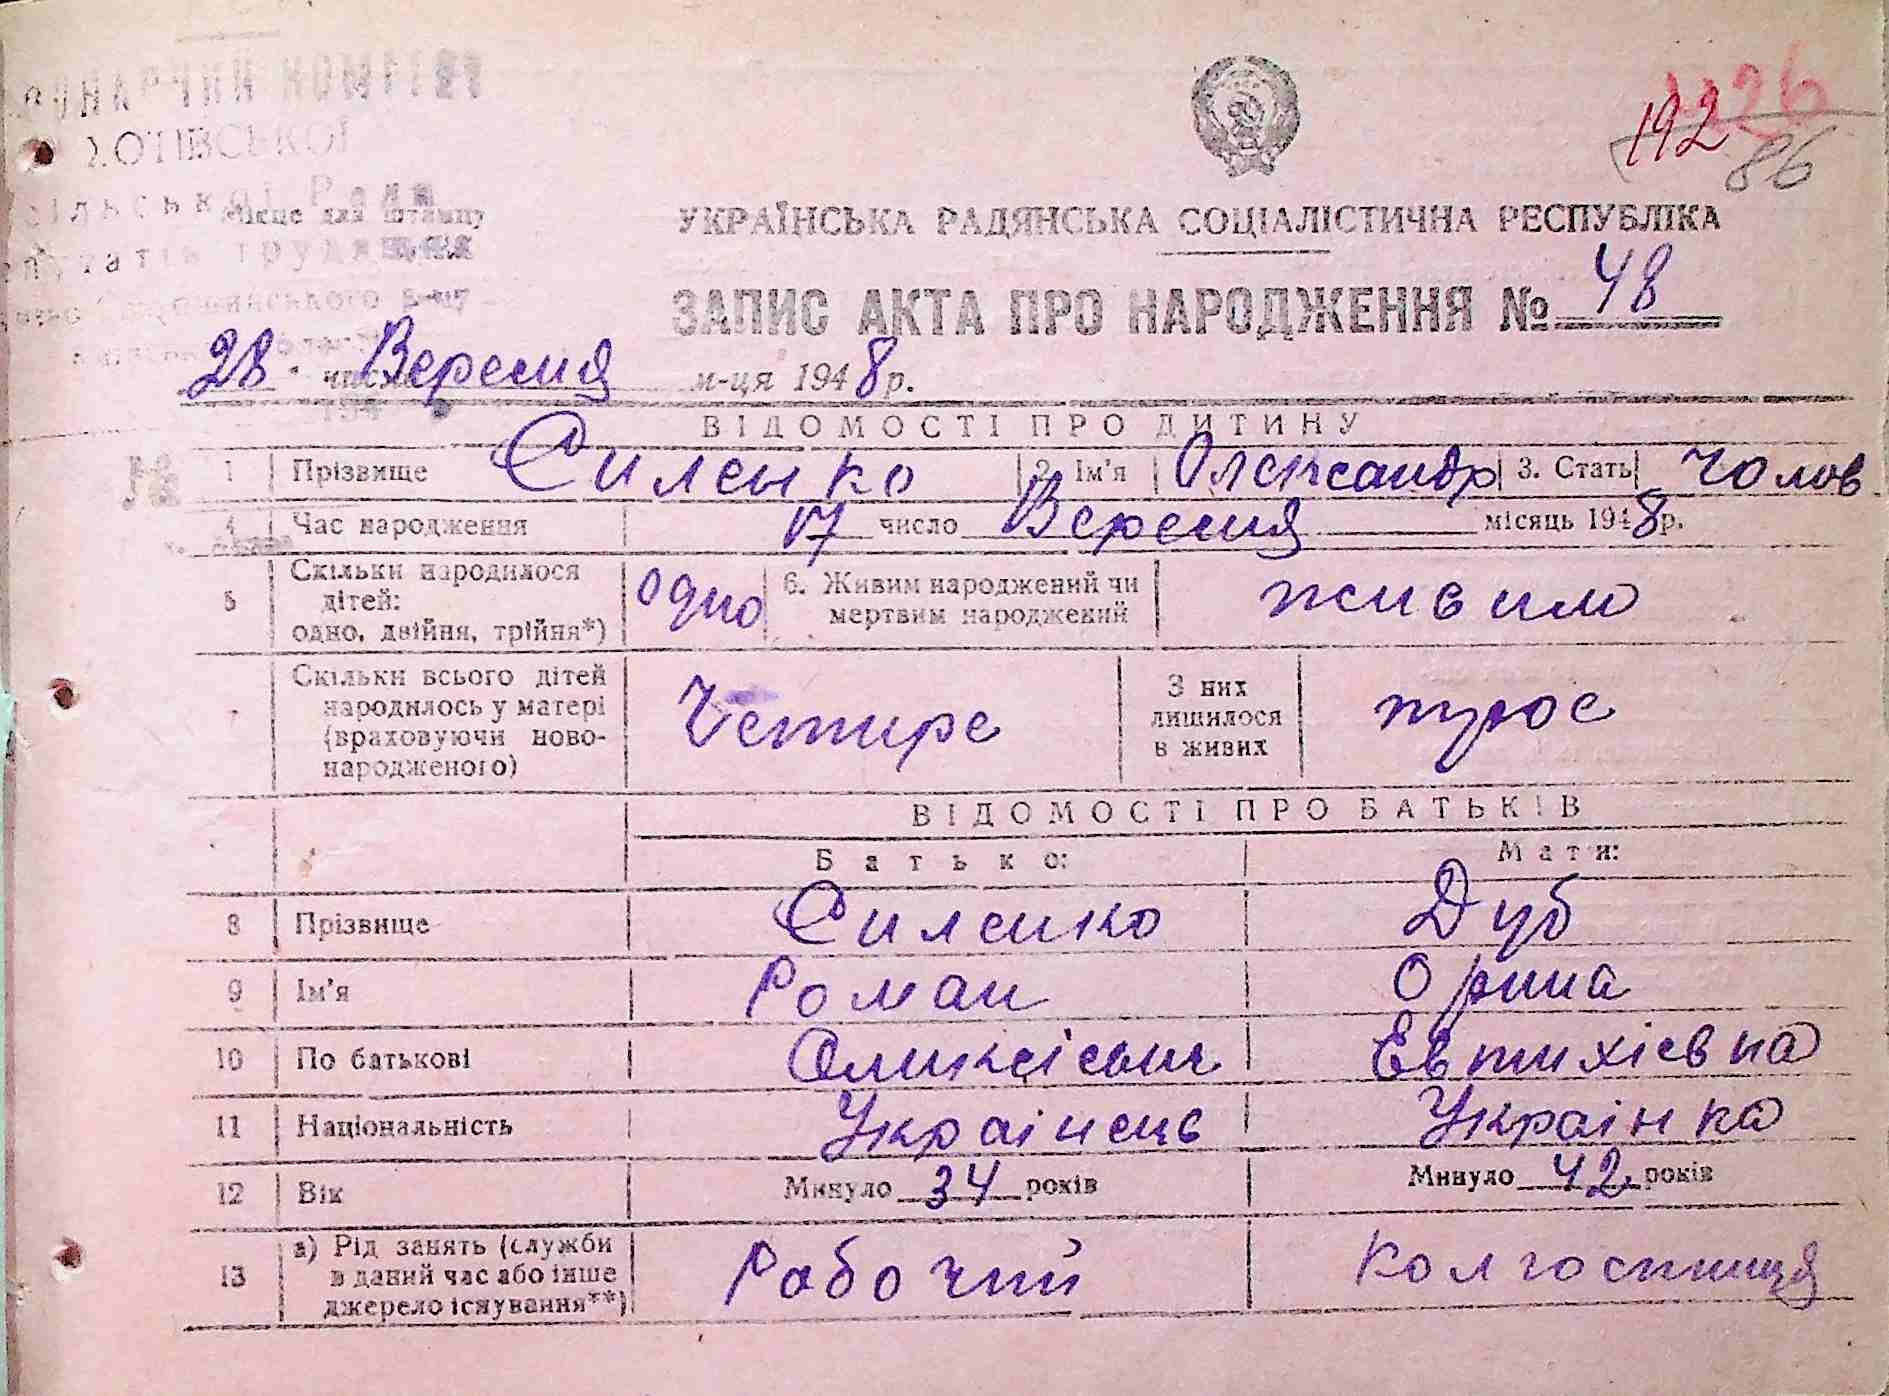 192 126
86
ХОТІВСЬКОЇ
сільської Ради
Місце для штампу
трудящих
УКРАЇНСЬКА РАДЯНСЬКА СОЦІАЛІСТИЧНА РЕСПУБЛІКА
ЗАПИС АКТА ПРО НАРОДЖЕННЯ № 48
28 Вересня м-ця 1948 р.
ВІДОМОСТІ ПРО ДИТИНУ
1 Прізвище Силенко 2. Ім'я Олександр 3. Стать Чолов
4 Час народження 17 число Вересня місяць 1948 р.
Скільки народилося
5 дітей: одно 6. Живим народжений чи живим
одно, двійня, трійня*) мертвим народжений
Скільки всього дітей
народилось у матері Четире З них трое
7 (враховуючи ново- лишилося
народженого) в живих
ВІДОМОСТІ ПРО БАТЬКІВ
Батько: Мати:
8 Прізвище Силенко Дуб
9 Ім'я Роман Орина
10 По батькові Оликсієвич Евтихієвна
11 Національність Українець Українка
12 Вік Минуло 34 років Минуло 42 років
а) Рід занять (служби
13 в даний час або інше Рабочий Колгоспниця
джерело існування**)